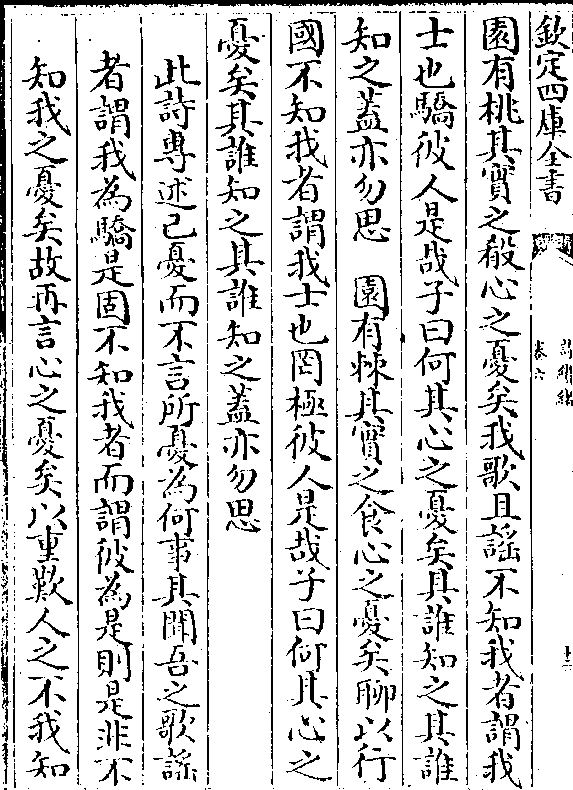 欽定四庫全書
詩纘緒
卷六
十三
園有桃其實之殽心之憂矣我歌且謡不知我者謂我
士也驕彼人是哉子曰何其心之憂矣其誰知之其誰
知之蓋亦勿思　園有棘其實之食心之憂矣聊以行
國不知我者謂我士也罔極彼人是哉子曰何其心之
憂矣其誰知之其誰知之蓋亦勿思
此詩専述己憂而不言所憂為何事其聞吾之歌謡
者謂我為驕是固不知我者而謂彼為是則是非不
知我之憂矣故再言心之憂矣以重歎人之不我知